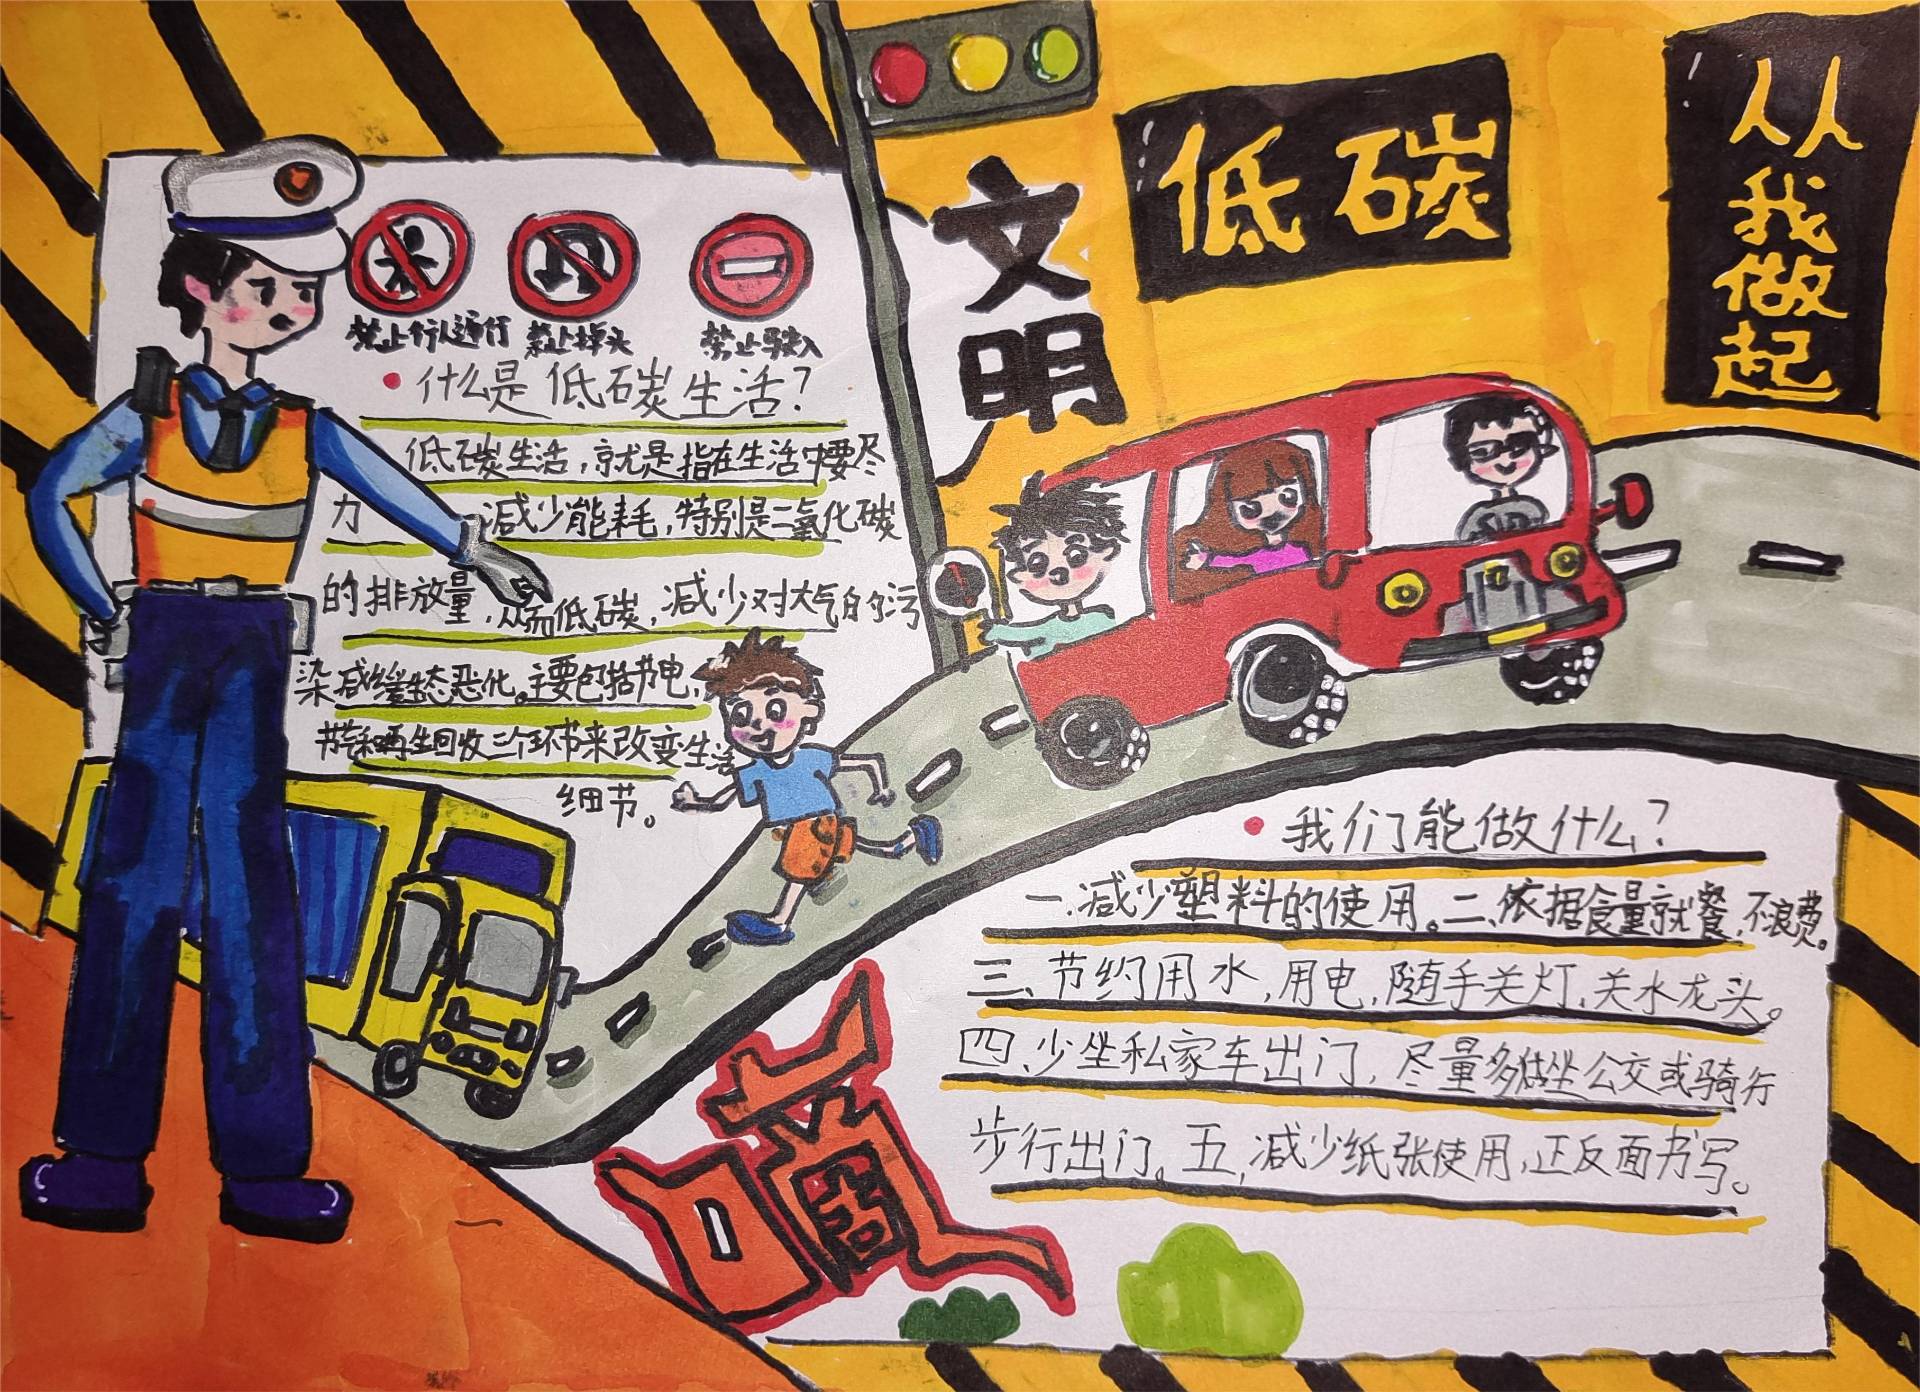 文明
低碳
从我做起
禁止行人通行 禁止掉头 禁止驶入
什么是低碳生活?
低碳生活,就是指在生活中要尽
力 减少能耗,特别是二氧化碳
的排放量,从而低碳,减少对大气的污
染减缓生态恶化。主要包括节电,
节气和再生回收三个环节来改变生活
细节。
我们能做什么?
一.减少塑料的使用。二、依据食量就餐,不浪费。
三、节约用水,用电,随手关灯,关水龙头。
四、少坐私家车出门,尽量多做坐公交或骑行
步行出门。五,减少纸张使用,正反面书写。
嘀